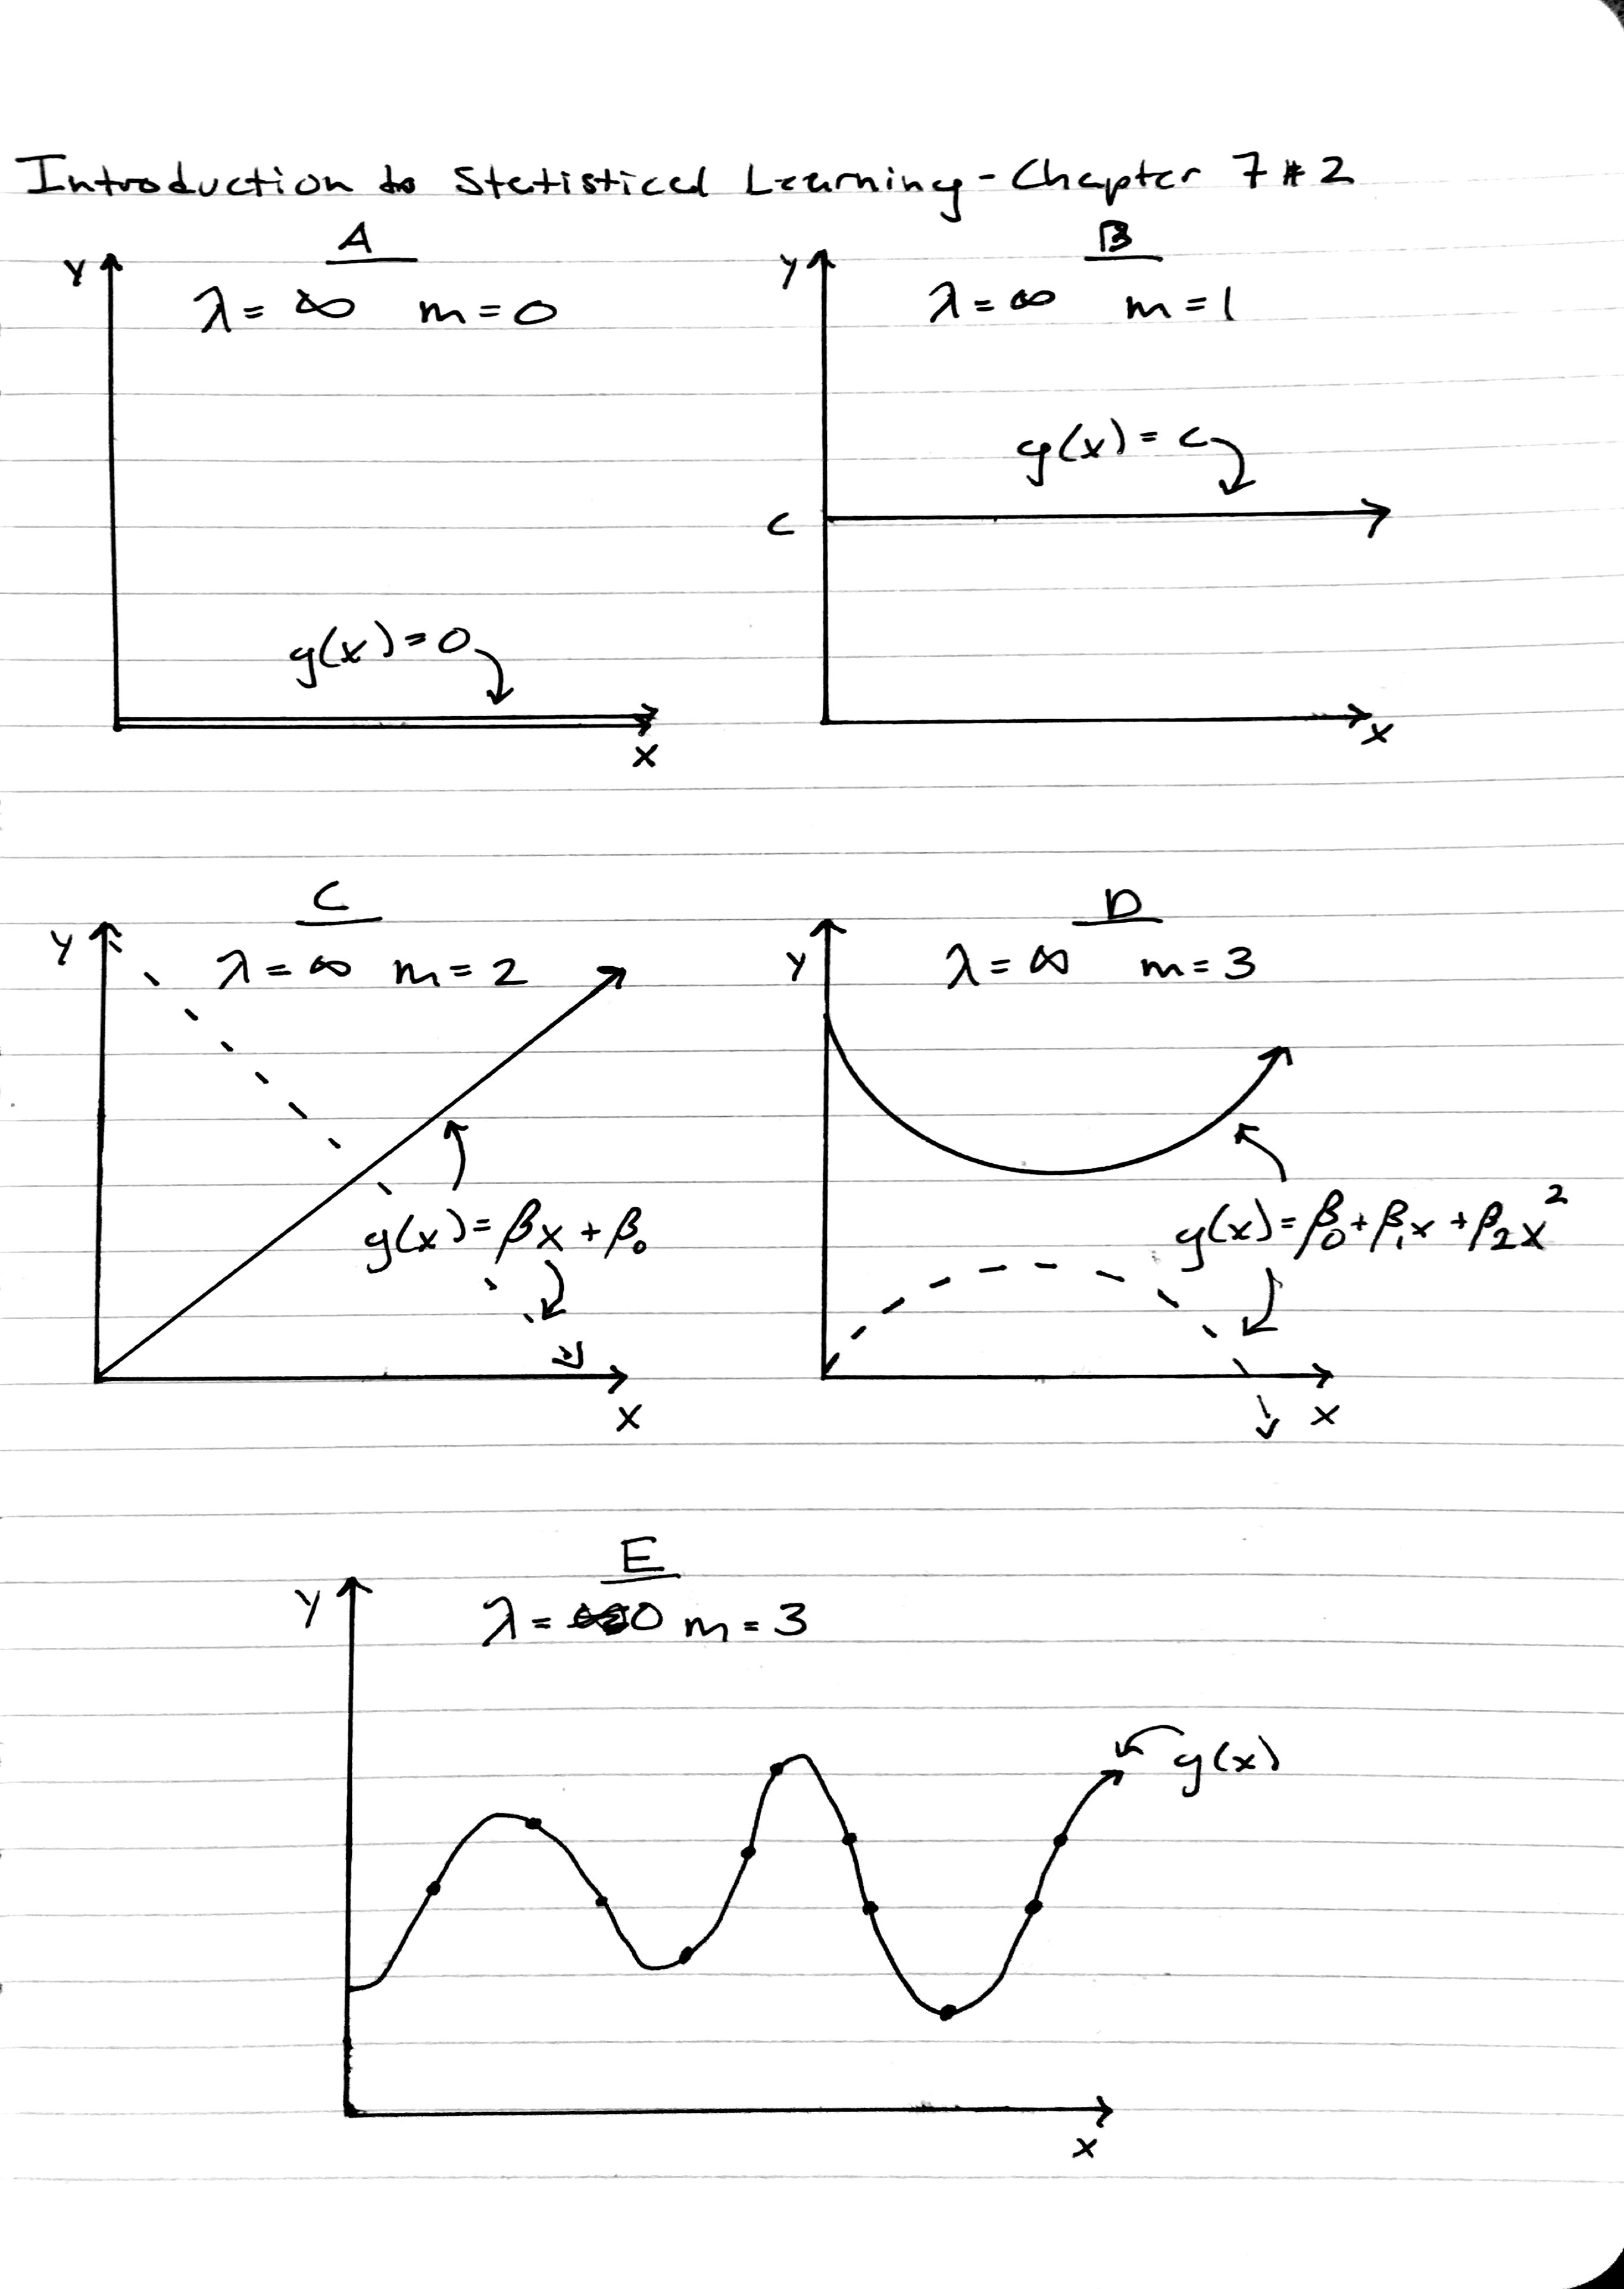 Introduction to Statistical Learning - Chapter 7 # 2
A
λ = ∞ m = 0
Y
g(x) = 0
X
B
λ = ∞ m = 1
Y
g(x) = c
C
X
C
λ = ∞ m = 2
Y
g(x) = βx + β₀
X
D
λ = ∞ m = 3
Y
g(x) = β₀ + β₁x + β₂x²
X
E
λ = 0 m = 3
Y
g(x)
X